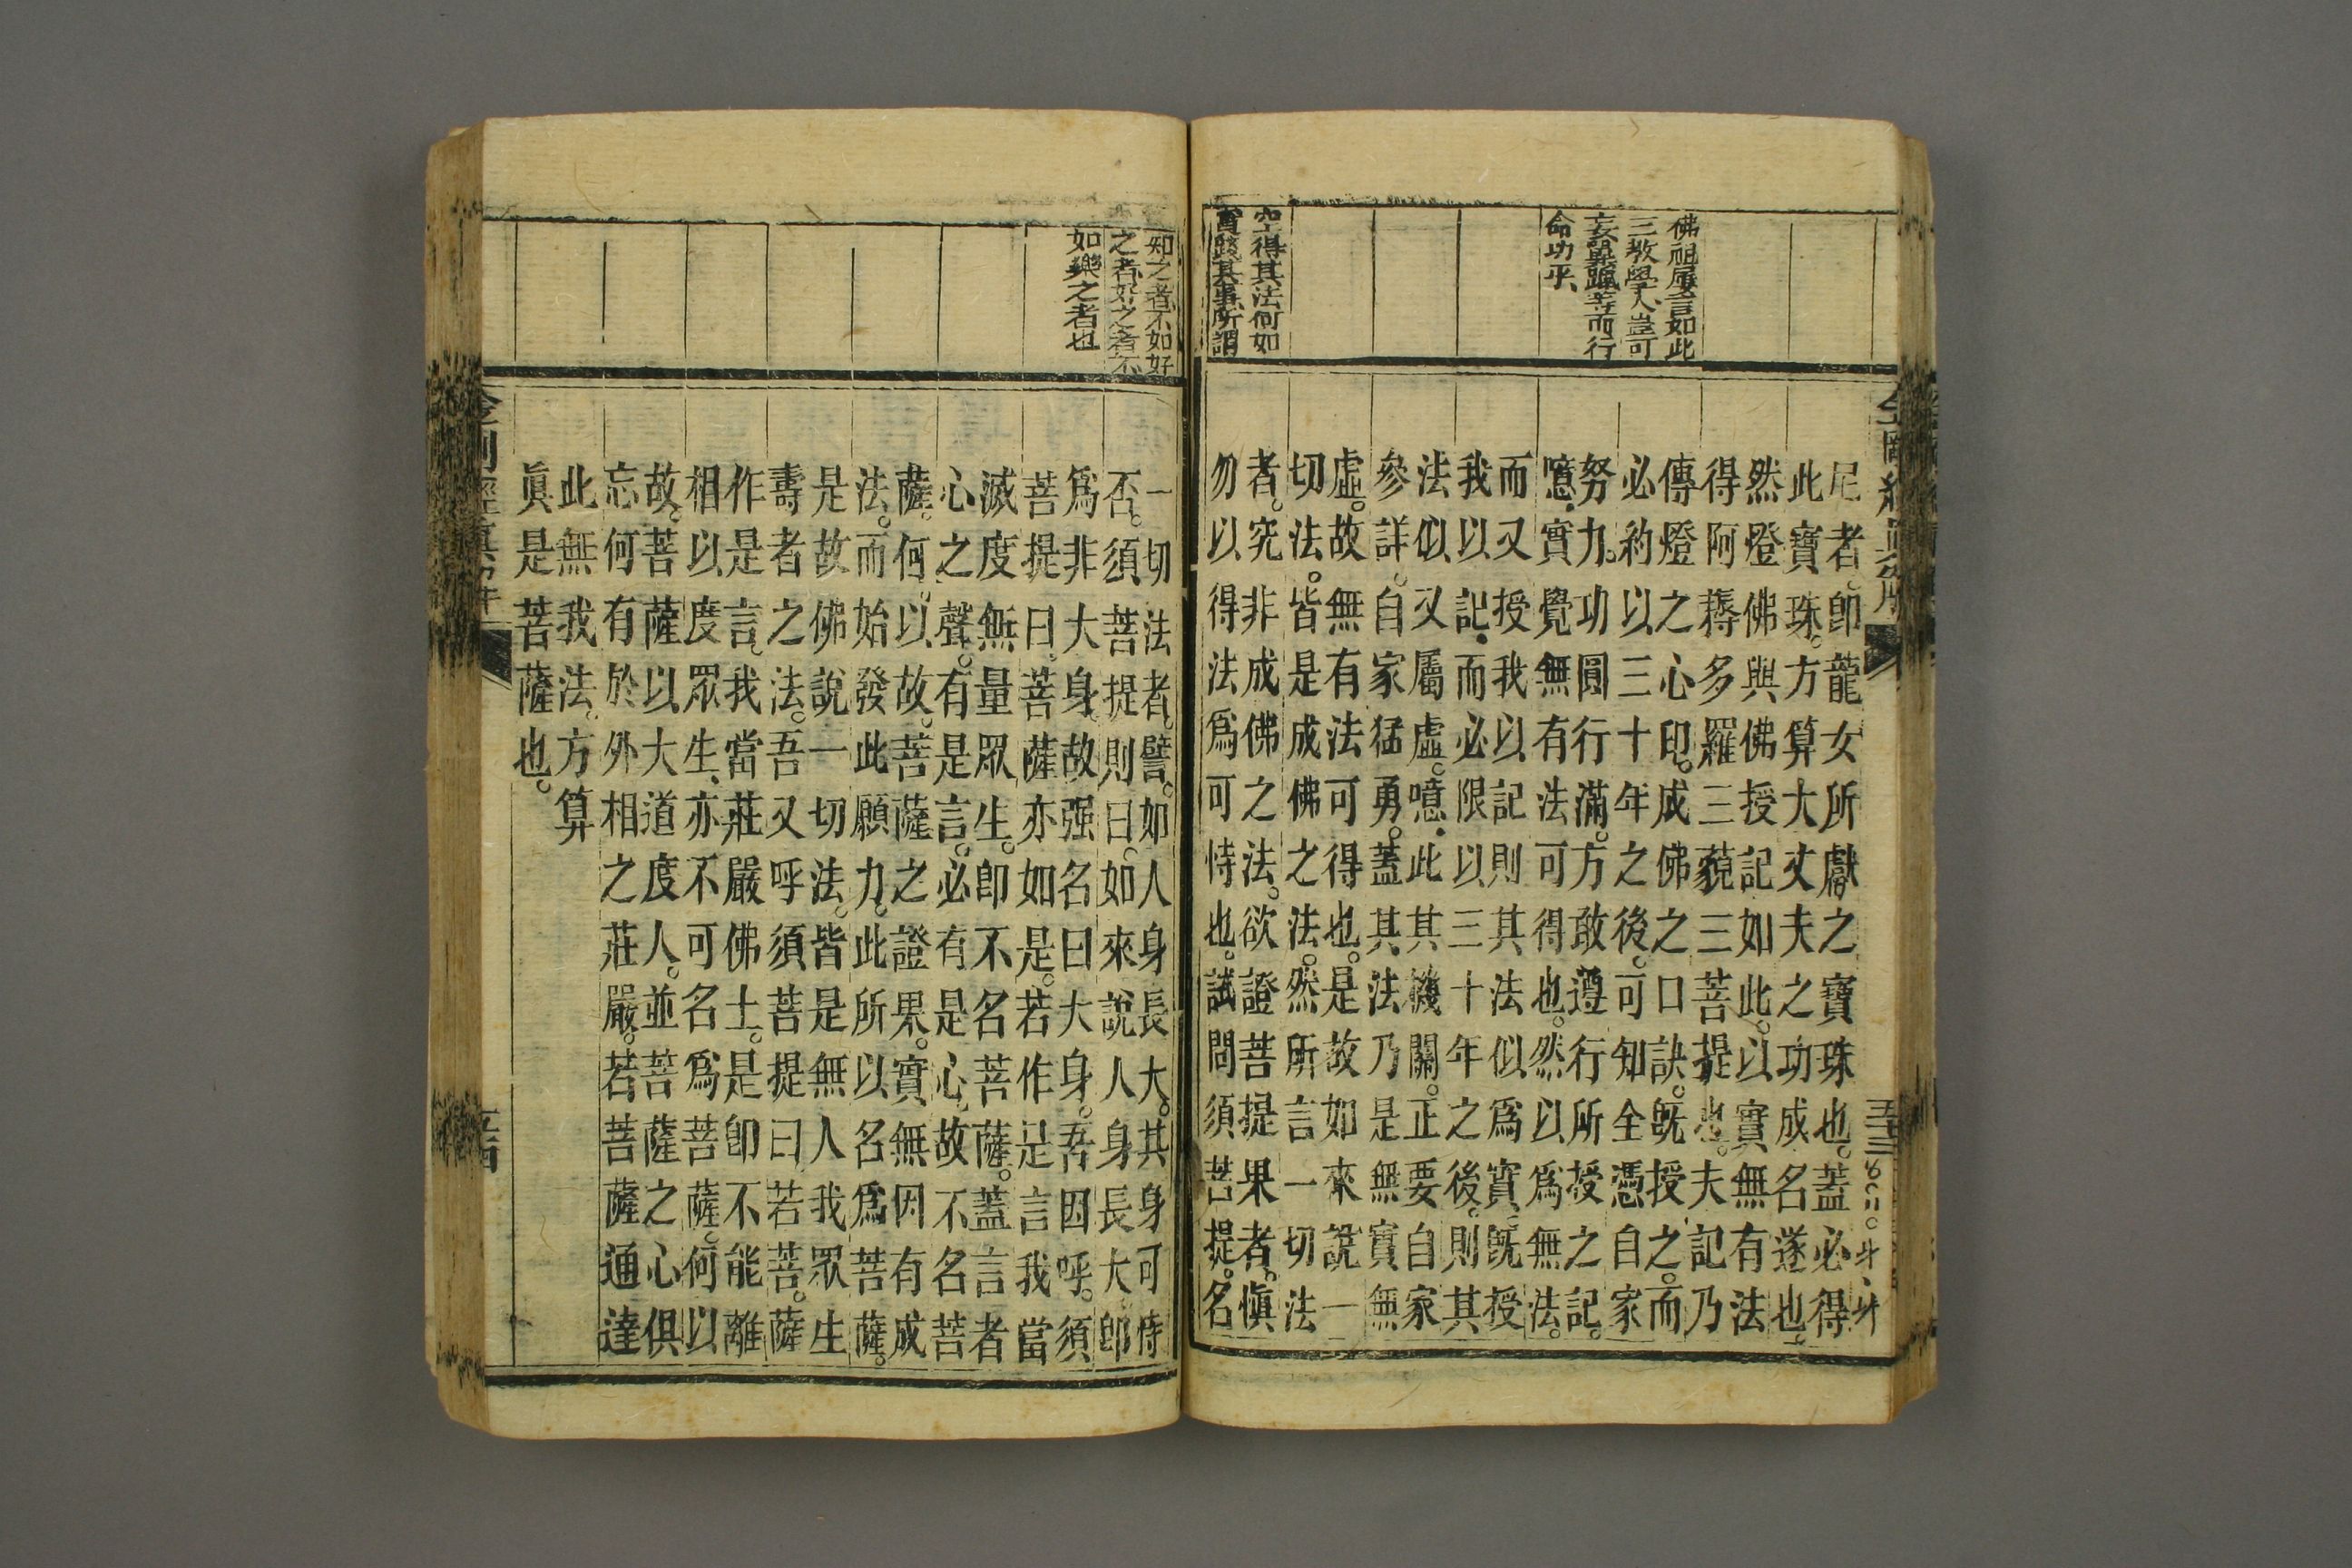 佛祖屢言如此
三教學人、豈可
妄異躐等而行
命功乎、
空得其法何如
實踐其事所謂
金剛經眞解
五十三
尼者。卽龍女所獻之寶珠也。蓋必得
此寶珠。方算大丈夫之功成名遂也。
然燈佛與佛授記如此。以實無有法
得阿耨多羅三藐三菩提也。夫記乃
傳燈之心印。成佛之口訣。旣授之。而
必約以三十年之後。可知全憑自家
努力。功圓行滿。方敢遵行所授之記。
噫。實覺無有法可得也。然以爲無法。
而又授我以記則其法似爲實。旣授
我以記。而必限以三十年之後。則其
法似又屬虛。噫。此其機關。正要自家
參詳。自家猛勇。蓋其法乃是無實無
虛。故無有法可得也。是故如來說一
切法。皆是成佛之法。然所言一切法
者。究非成佛之法。欲證菩提果者。愼
勿以得法爲可恃也。試問須菩提。名
知之者不如好
之者、好之者不
如樂之者也
一切法者。譬如人身長大。其身可恃
否。須菩提則曰。如來說人身長大。卽
爲非大身。故强名曰大身。吾因呼。須
菩提曰。菩薩亦如是。若作是言我當
滅度無量眾生。卽不名菩薩。蓋言者
心之聲。有是言。必有是心。故不名菩
薩。何以故。菩薩之證果。實無因有成
法。而始發此願力。此所以名爲菩薩。
是故佛說一切法。皆是無人我眾生
壽者之法。吾又呼須菩提曰若菩。薩
作是言。我當莊嚴佛土。是卽不能離
相以度眾生。亦不可名爲菩薩。何以
故。菩薩以大道度人。並菩薩之心俱
忘何有於外相之莊嚴。若菩薩通達
此無我法。方算
眞是菩薩也。
金剛經眞解